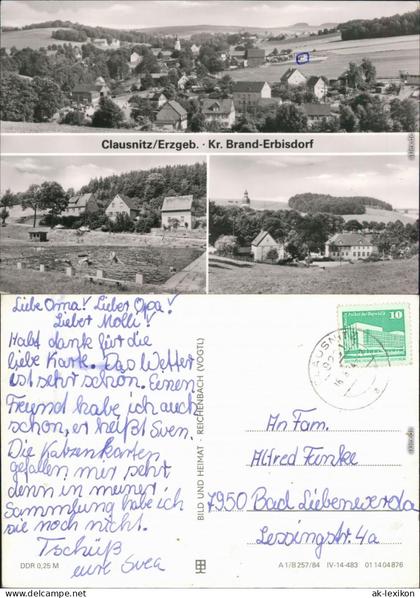 Clausnitz/Erzgeb. · Kr. Brand-Erbisdorf
Liebe Oma! Lieber Opa!
Lieber Molli!
Habt dank für die
liebe Kart. Das Wetter
ist sehr schön. Einen
Freund habe ich auch
schon, er heißt Sven.
Die Katzenkarten
gefallen mir sehr
denn in meiner
Sammlung habe ich
sie noch nicht.
Tschüß
eure Svea
DDR 0,25 M
BILD UND HEIMAT · REICHENBACH (VOGTL)
10
An Fam.
Alfred Funke
7950 Bad Liebenwerda
Lessingstr. 4a
A 1/B 257/84 IV-14-483 01 14 04 876
© www.delcampe.net
ak-lexikon